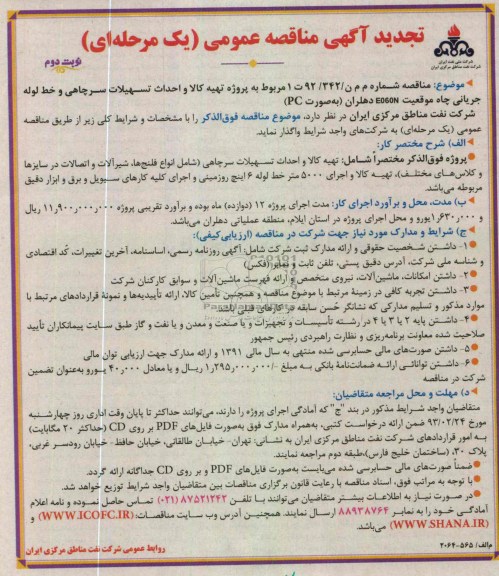 تجدید آگهی مناقصه عمومی (یک مرحله‌ای)
نوبت دوم
شرکت ملی نفت ایران
شرکت نفت مناطق مرکزی ایران
موضوع: مناقصه شماره م م ن/۳۴۲/ ۹۲ ت ۱ مربوط به پروژه تهیه کالا و احداث تسهیلات سرچاهی و خط لوله
جریانی چاه موقعیت E060N دهلران (به‌صورت PC)
شرکت نفت مناطق مرکزی ایران در نظر دارد، موضوع مناقصه فوق‌الذکر را با مشخصات و شرایط کلی زیر از طریق مناقصه
عمومی (یک مرحله‌ای) به شرکت‌های واجد شرایط واگذار نماید.
الف) شرح مختصر کار:
پروژه فوق‌الذکر مختصراً شامل: تهیه کالا و احداث تسهیلات سرچاهی (شامل انواع فلنج‌ها، شیرآلات و اتصالات در سایزها
و کلاس‌های مختلف)، تهیه کالا و اجرای ۵۰۰۰ متر خط لوله ۶ اینچ روزمینی و اجرای کلیه کارهای سیویل و برق و ابزار دقیق
مربوطه می‌باشد.
ب) مدت، محل و برآورد اجرای کار: مدت اجرای پروژه ۱۲ (دوازده) ماه بوده و برآورد تقریبی پروژه ۱۱٫۹۰۰٫۰۰۰٫۰۰۰ ریال
و ۱٫۶۳۰٫۰۰۰ یورو و محل اجرای پروژه در استان ایلام، منطقه عملیاتی دهلران می‌باشد.
ج) شرایط و مدارک مورد نیاز جهت شرکت در مناقصه (ارزیابی کیفی):
۱- داشتن شخصیت حقوقی و ارائه مدارک ثبت شرکت شامل: آگهی روزنامه رسمی، اساسنامه، آخرین تغییرات، کد اقتصادی
و شناسه ملی شرکت، آدرس دقیق پستی، تلفن ثابت و نمابر (فکس)
۲- داشتن امکانات، ماشین‌آلات، نیروی متخصص و ارائه فهرست ماشین‌آلات و سوابق کارکنان شرکت
۳- داشتن تجربه کافی در زمینهٔ مرتبط با موضوع مناقصه و همچنین تأمین کالا، ارائه تأییدیه‌ها و نمونهٔ قراردادهای مرتبط با
موارد مذکور و تسلیم مدارکی که نشانگر حُسن سابقه در کارهای قبلی باشد
۴- داشتن پایه ۲ یا ۳ یا ۴ در رشته تأسیسات و تجهیزات و یا صنعت و معدن و یا نفت و گاز طبق سایت پیمانکاران تأیید
صلاحیت شده معاونت برنامه‌ریزی و نظارت راهبردی رئیس جمهور
۵- داشتن صورت‌های مالی حسابرسی شده منتهی به سال مالی ۱۳۹۱ و ارائه مدارک جهت ارزیابی توان مالی
۶- داشتن توانائی ارائه ضمانت‌نامهٔ بانکی به مبلغ -/۱٫۲۹۵٫۰۰۰٫۰۰۰ ریال و یا معادل ۴۰٫۰۰۰ یورو به‌عنوان تضمین
شرکت در مناقصه
د) مهلت و محل مراجعه متقاضیان:
متقاضیان واجد شرایط مذکور در بند "ج" که آمادگی اجرای پروژه را دارند، می‌توانند حداکثر تا پایان وقت اداری روز چهارشنبه
مورخ ۹۳/۰۲/۲۴ ضمن ارائه درخواست کتبی، به‌همراه مدارک فوق به‌صورت فایل‌های PDF بر روی CD (حداکثر ۲۰ مگابایت)
به امور قراردادهای شرکت نفت مناطق مرکزی ایران به نشانی: تهران- خیابان طالقانی، خیابان حافظ- خیابان رودسر غربی،
پلاک ۳۰، (ساختمان خلیج فارس)، طبقه دوم مراجعه نمایند.
ضمناً صورت‌های مالی حسابرسی شده می‌بایست به‌صورت فایل‌های PDF و بر روی CD جداگانه ارائه گردد.
با توجه به مراتب فوق، اسناد مناقصه با رعایت قانون برگزاری مناقصات بین متقاضیان واجد شرایط توزیع خواهد شد.
در صورت نیاز به اطلاعات بیشتر متقاضیان می‌توانند با تلفن ۸۷۵۲۱۲۴۲ (۰۲۱) تماس حاصل نموده و نامه اعلام
آمادگی خود را به نمابر ۸۸۹۳۸۷۶۴ ارسال نمایند. همچنین آدرس وب سایت مناقصات: (WWW.ICOFC.IR) و
(WWW.SHANA.IR) می‌باشد.
روابط عمومی شرکت نفت مناطق مرکزی ایران
م‌الف/ ۵۶۵-۲۰۶۴